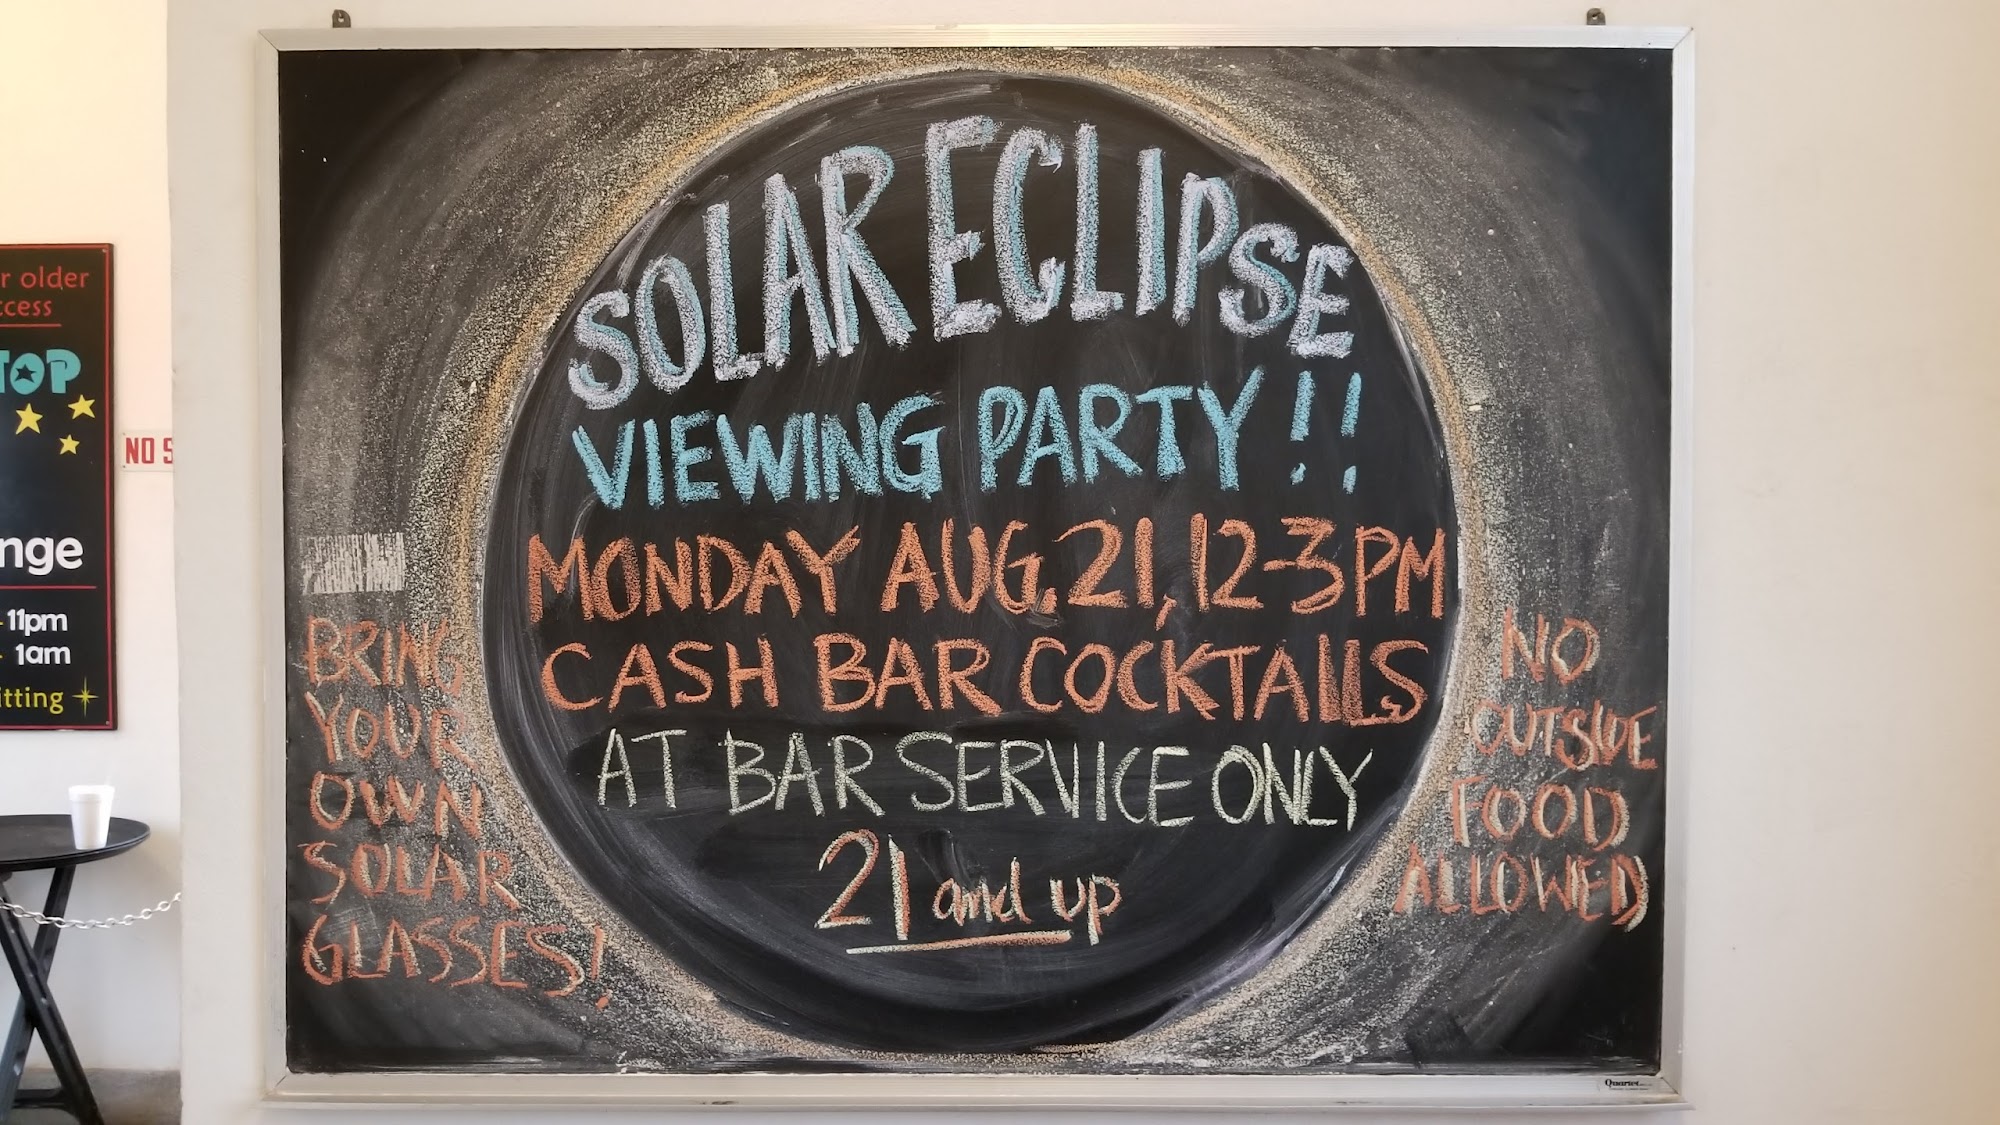 SOLAR ECLIPSE
VIEWING PARTY!!
MONDAY AUG. 21, 12-3 PM
CASH BAR COCKTAILS
AT BAR SERVICE ONLY
21 and up
BRING
YOUR
OWN
SOLAR
GLASSES!
NO
OUTSIDE
FOOD
ALLOWED
r older
ccess
TOP
nge
11pm
1am
itting
NO S
Quartet